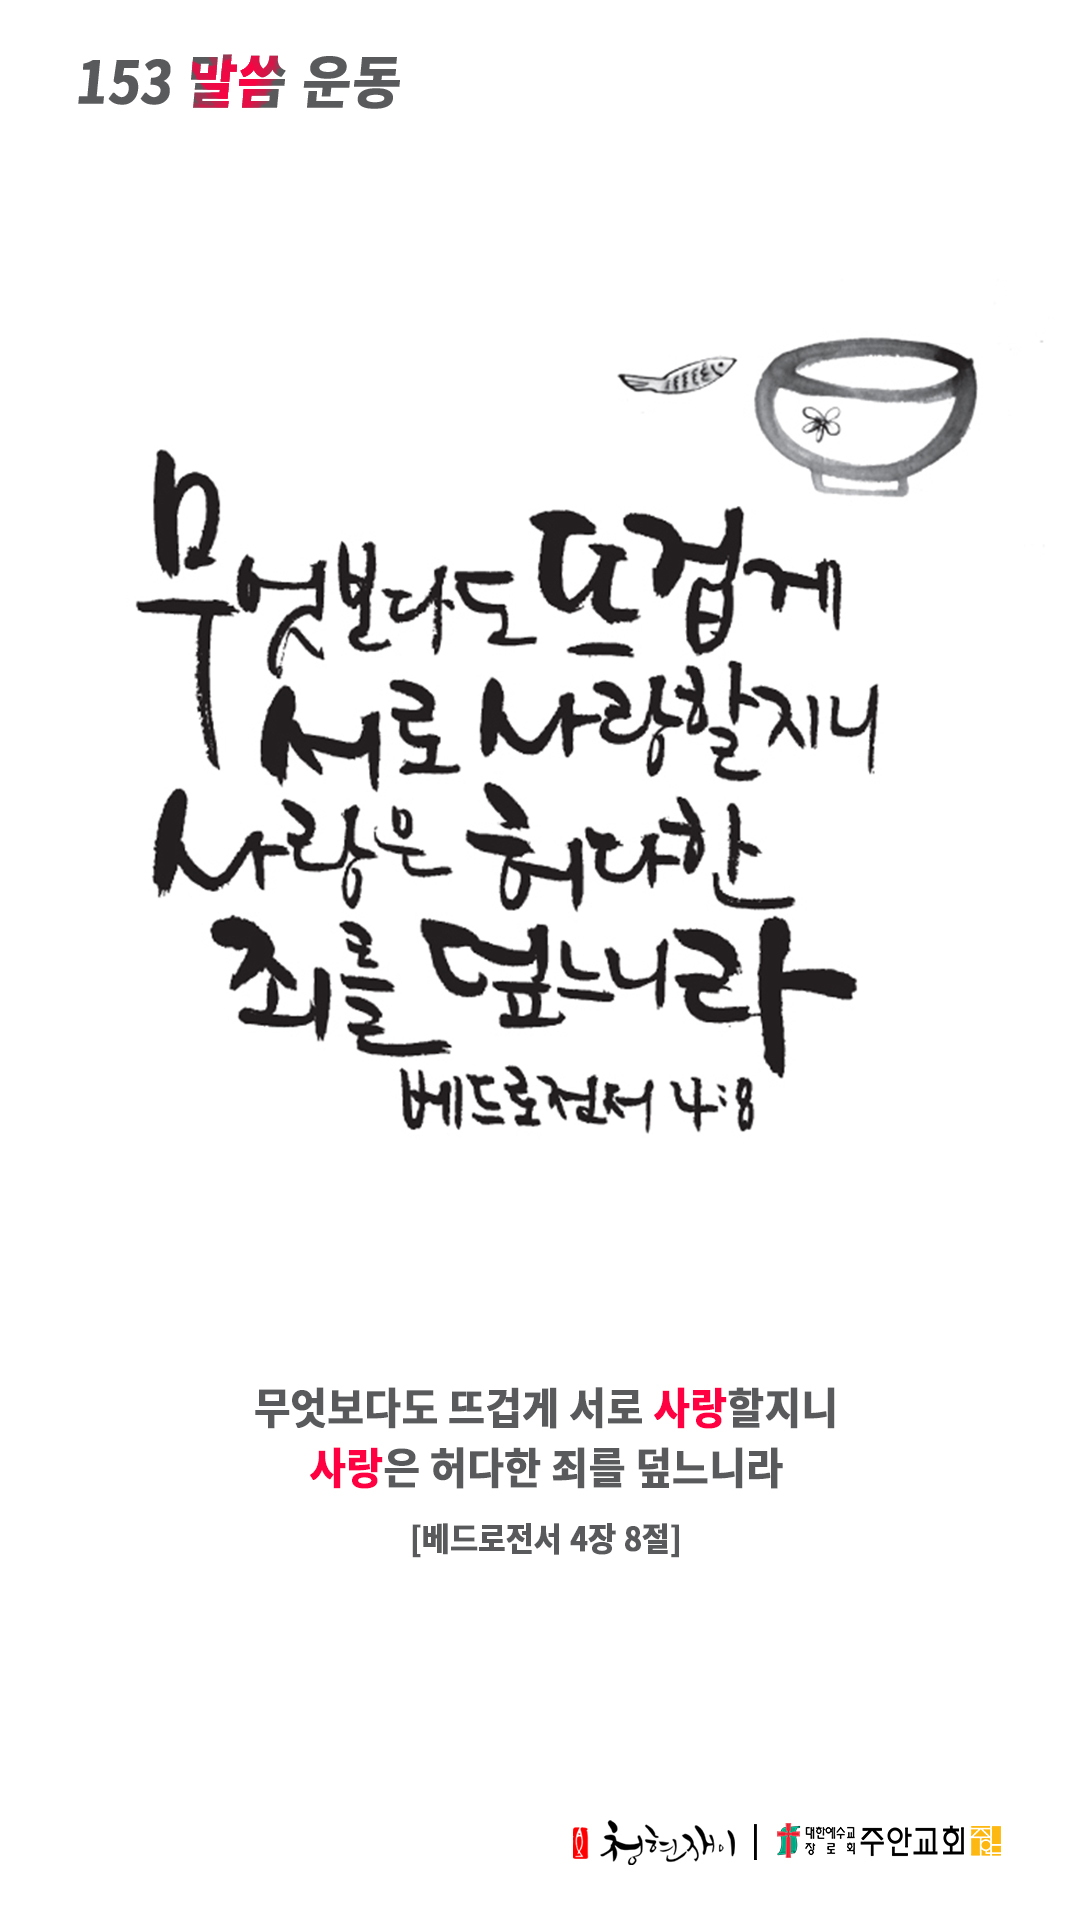 153 말씀 운동
무엇보다도 뜨겁게
서로 사랑할지니
사랑은 허다한
죄를 덮느니라
베드로전서 4:8
무엇보다도 뜨겁게 서로 사랑할지니
사랑은 허다한 죄를 덮느니라
[베드로전서 4장 8절]
청현재이 | 대한예수교장로회 주안교회 주안